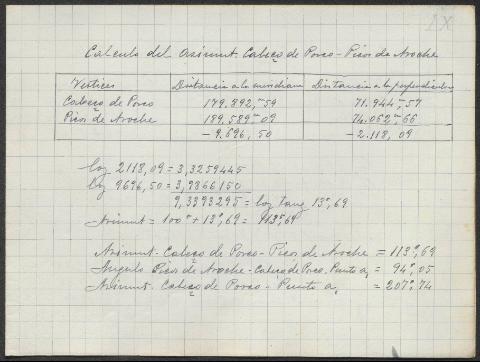 IX
Calculo del Azimut. Cabeço de Porco - Picos de Aroche
Vertices Distancia a la meridiana Distancia a la perpendicular
Cabeço de Porco 179.892,ᵐ59 71.944,ᵐ57
Picos de Aroche 189.589,ᵐ09 74.062,ᵐ66
- 9.696,50 - 2.118,09
log 2118,09 = 3,3259445
log 9696,50 = 3,9866150
9,3393295 = log tang 13ᵍ,69
Azimut = 100ᵍ + 13ᵍ,69 = 113ᵍ,69
Azimut - Cabeço de Porco - Picos de Aroche = 113ᵍ,69
Angulo Picos de Aroche - Cabeço de Porco. Punto a₁ = 94ᵍ,05
Azimut. Cabeço de Porco - Punto a₁ = 207ᵍ,74